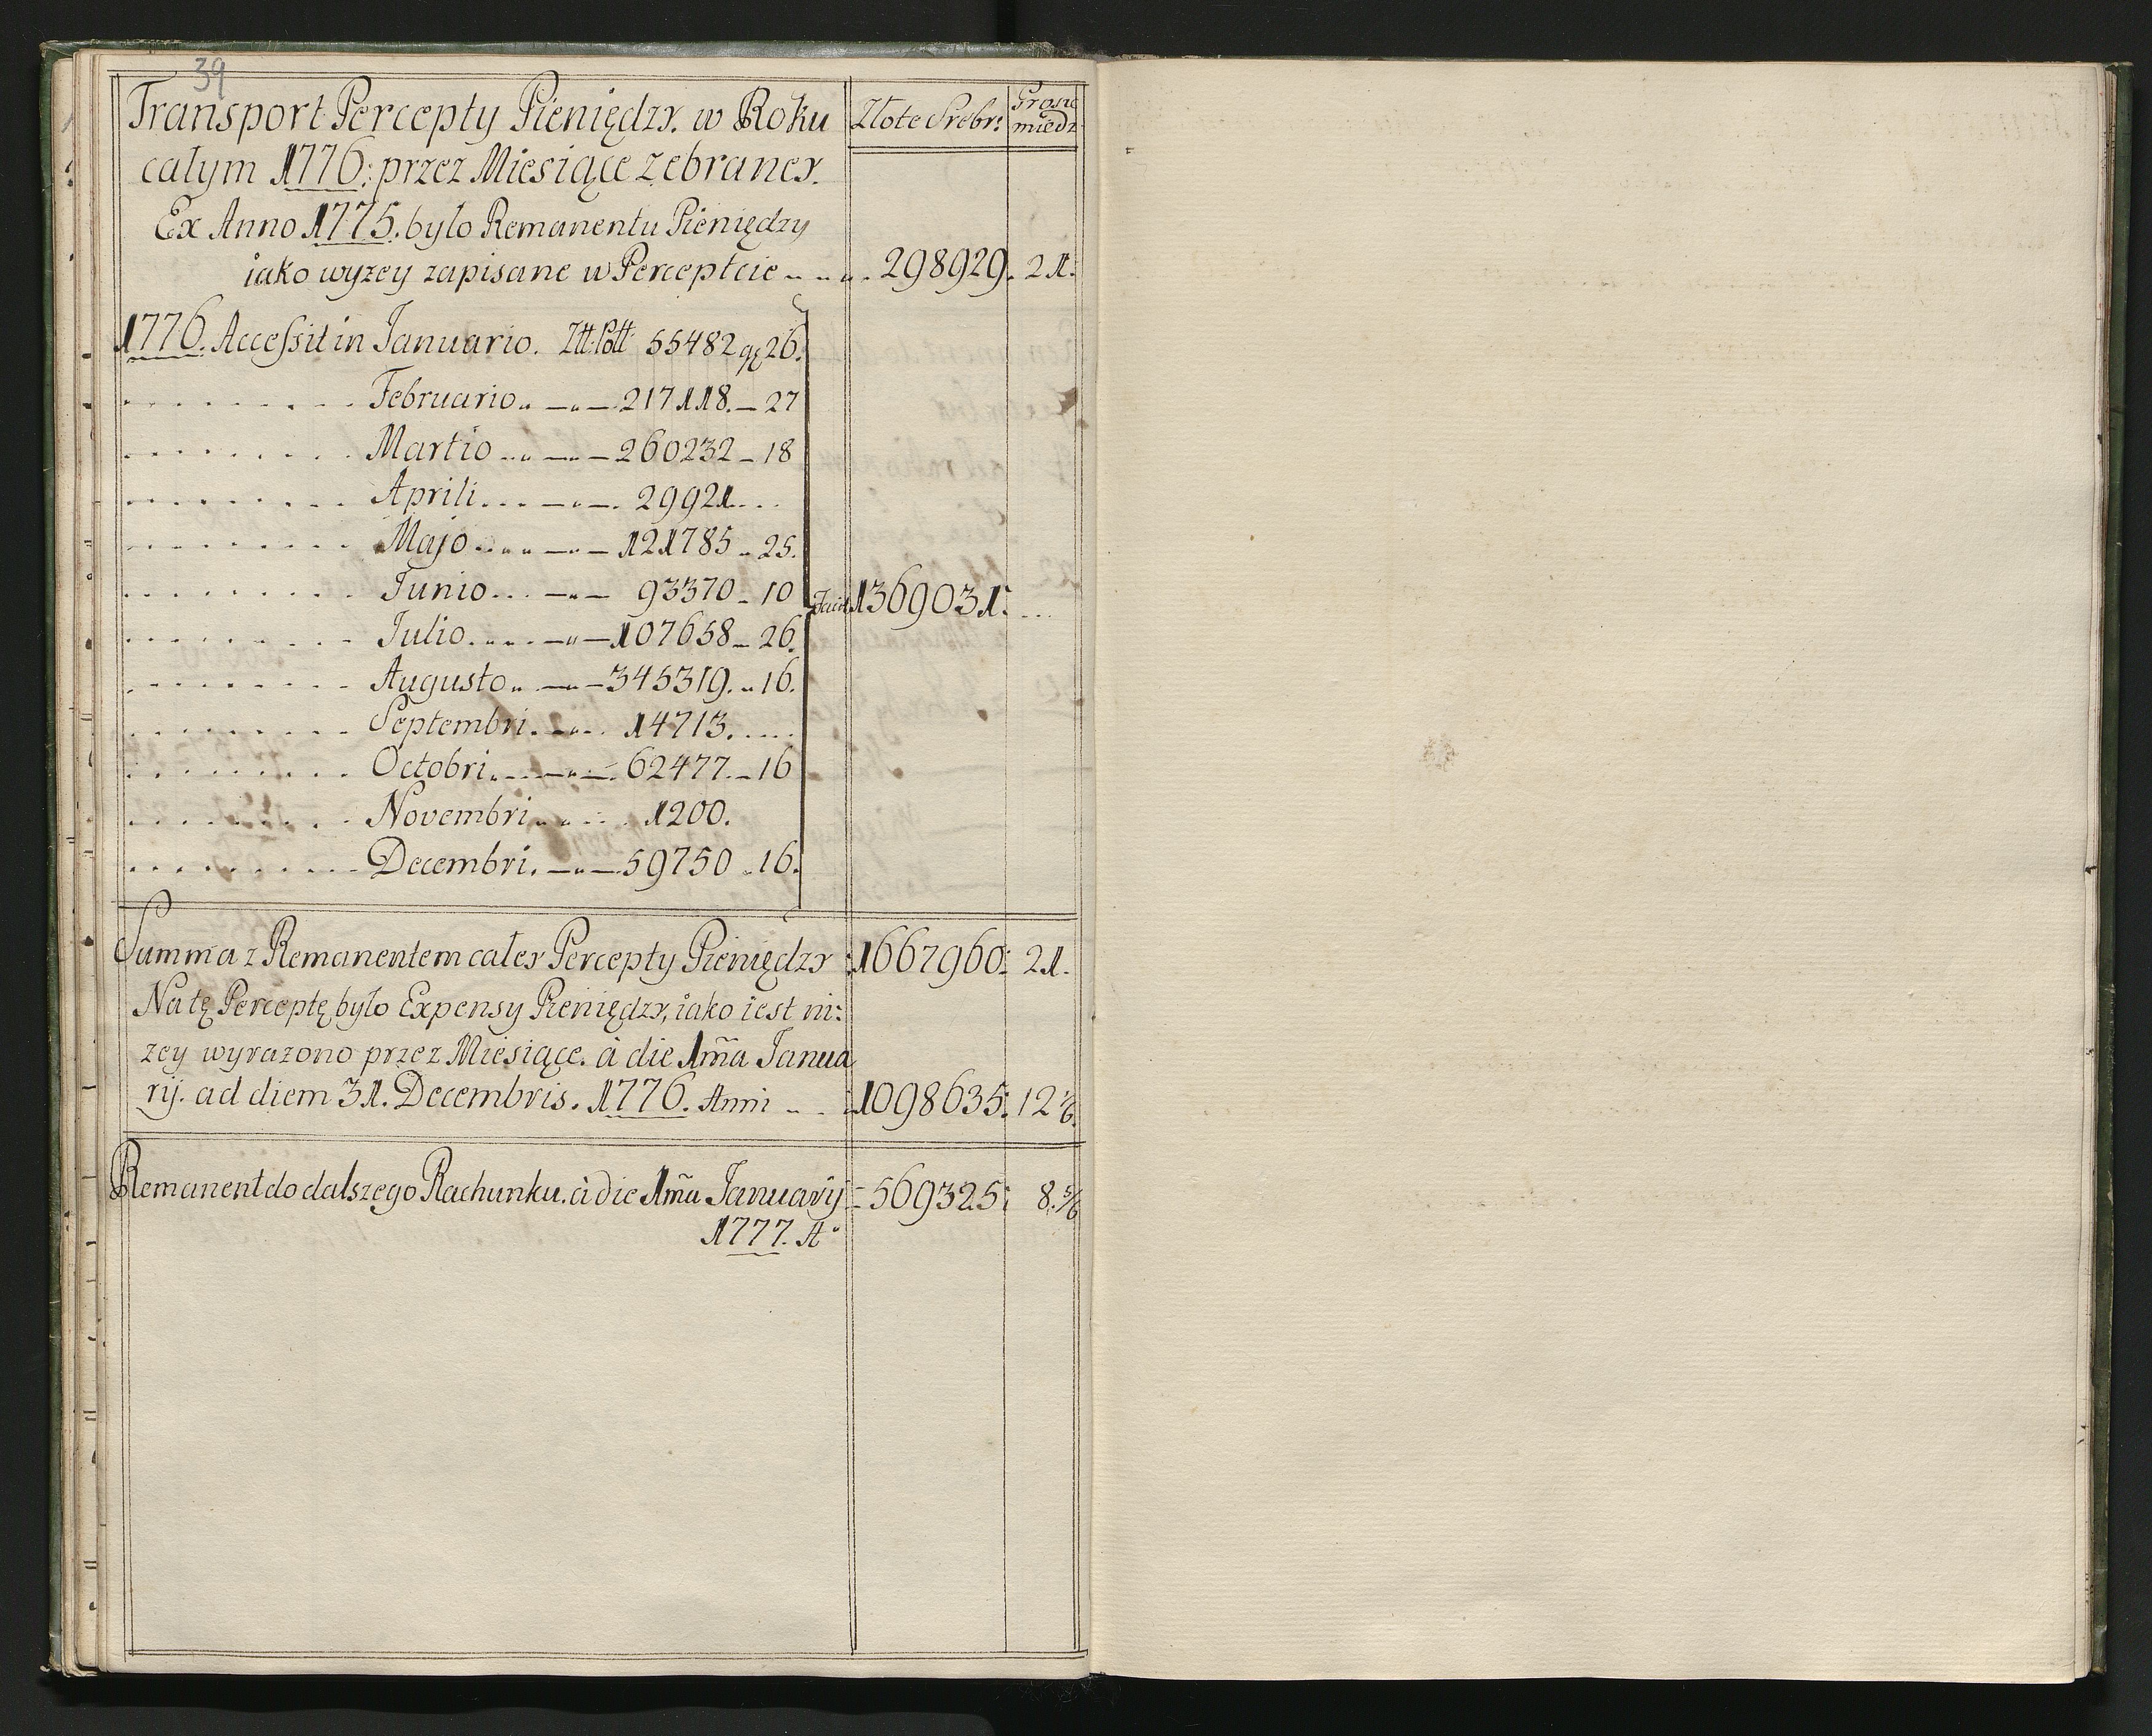 39
Transport Percepty Pieniędzy. w Roku
Złote Srebr:
Grosze
miedz
całym 1776: przez Miesiące zebraney.
Ex Anno 1775. było Remanentu Pieniędzy
iako wyzey zapisane w Percepicie - - - - 298929. 21.
1776. Accessit in Januario. Ztt: Poll: 55482 gr 26.
. . . . . . . . . Februario. - - - 217118. - 27
. . . . . . . . . Martio - - - 260232 - 18
. . . . . . . . . Aprili. . . - - - 29921. . .
. . . . . . . . . Majo . . . - - - 121785 - 25.
. . . . . . . . . Junio . . . - - - 93370 - 10
Facit 1369031. . . .
. . . . . . . . . Julio . . . - - - 107658 - 26.
. . . . . . . . . Augusto . - - - 345319. - 16.
. . . . . . . . . Septembri. - - - 14713. . . . .
. . . . . . . . . Octobri. - - - 62477. - 16
. . . . . . . . . Novembri . . . . 1200.
. . . . . . . . . Decembri. - - - 59750 - 16.
Summa z Remanentem całey Percepty Pieniędzy : 1667960: 21.
Na tę Perceptę było Expensy Pieniędzy, iako iest ni:
zey wyrazono przez Miesiące. à die 1m̃a Janua
rij. ad diem 31. Decembris. 1776. Anni - - : 1098635: 12 1/6.
Remanent do dalszego Rachunku. à die 1m̃a Januarij = 569325: 8. 5/6
1777. A°